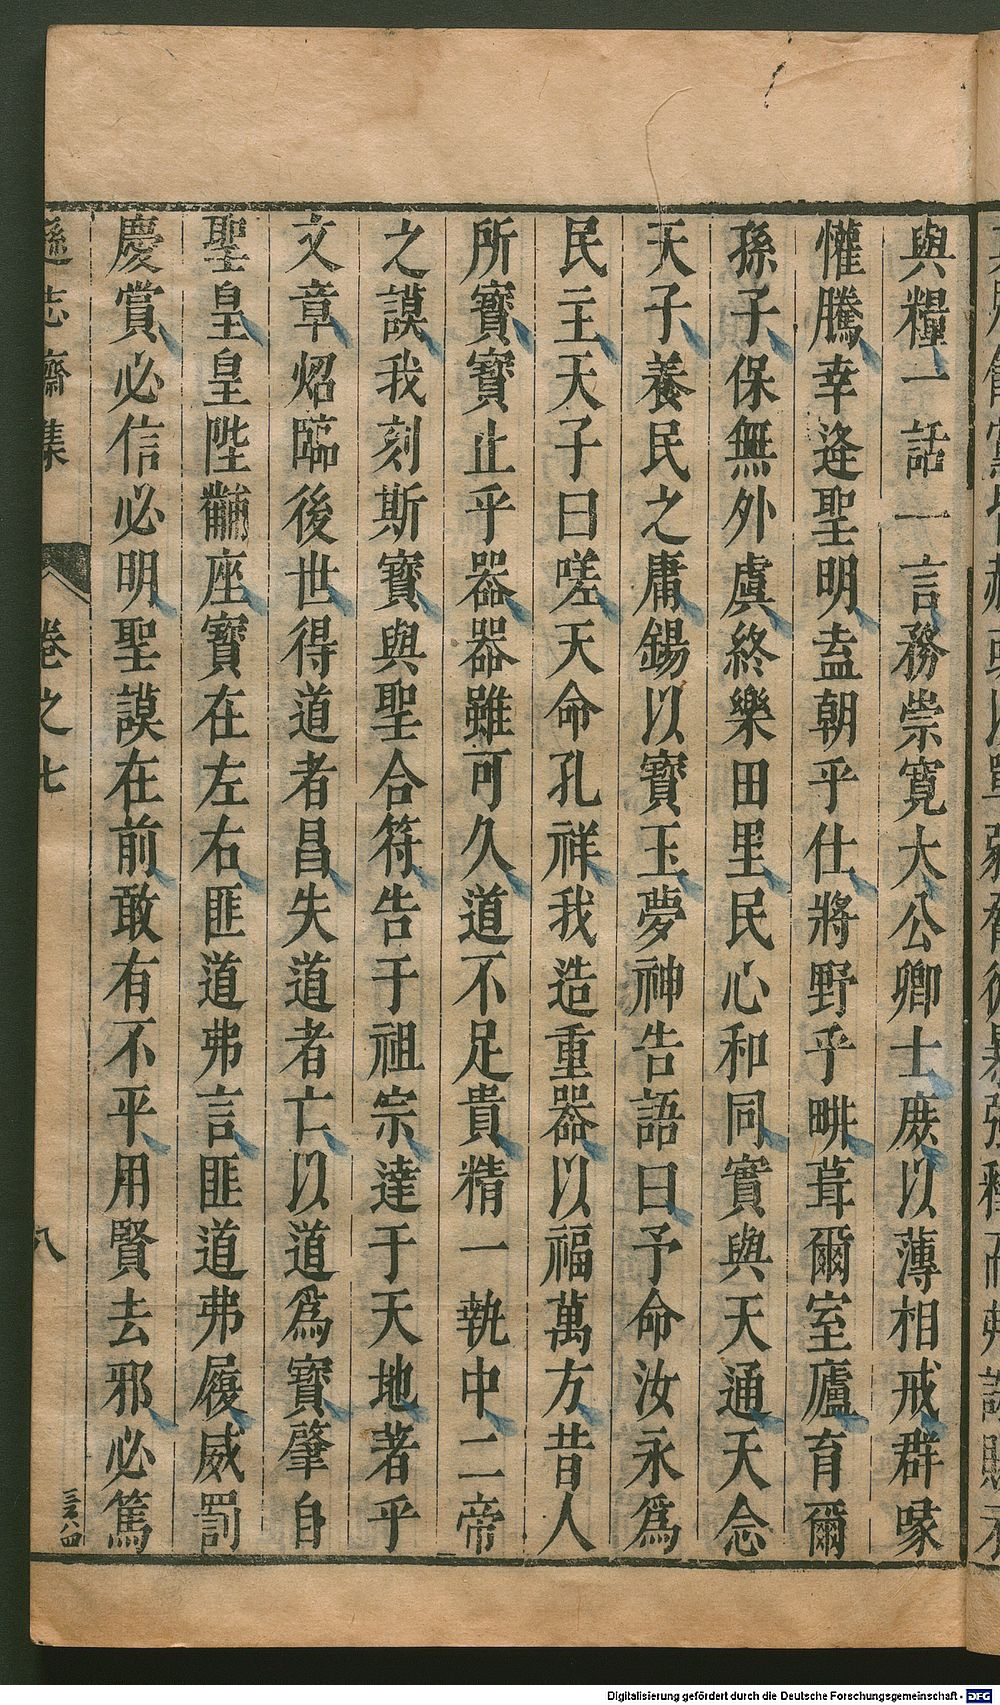 與糧一話一言務崇寬大公卿士庻以薄相戒群喙
懽騰幸逢聖明盍朝乎仕將野乎畊葺爾室廬育爾
孫子保無外虞終樂田里民心和同實與天通天念
天子養民之庸錫以寳玉夢神告語曰予命汝永爲
民主天子曰嗟天命孔祥我造重器以福萬方昔人
所寳寳止乎器器雖可久道不足貴精一執中二帝
之謨我刻斯寳與聖合符告于祖宗達于天地著乎
文章炤臨後世得道者昌失道者亡以道爲寳肇自
聖皇皇陛黼座寳在左右匪道弗言匪道弗履威罰
慶賞必信必明聖謨在前敢有不平用賢去邪必篤
遜志齋集 卷之七 八
三百八四
Digitalisierung gefördert durch die Deutsche Forschungsgemeinschaft - DFG